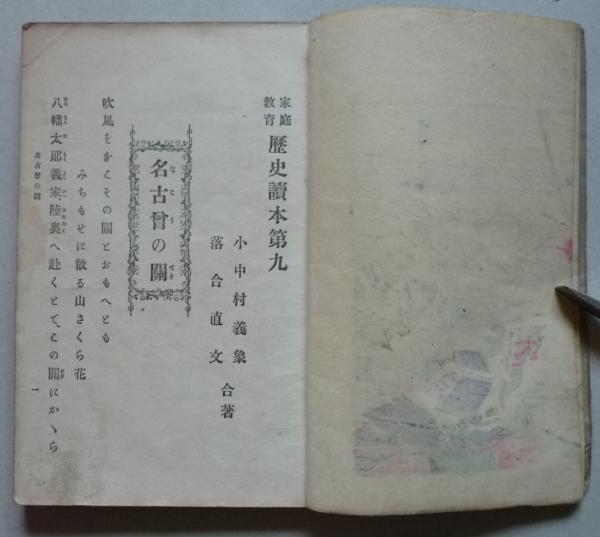 家庭教育 歷史讀本第九
小中村義象
落合直文
合著
名古曾の關
吹風をなこその關とおもへども
みちもせに散る山さくら花
八幡太郎義家、陸奥へ赴くとて、この關にかゝら
名古曾の關
一